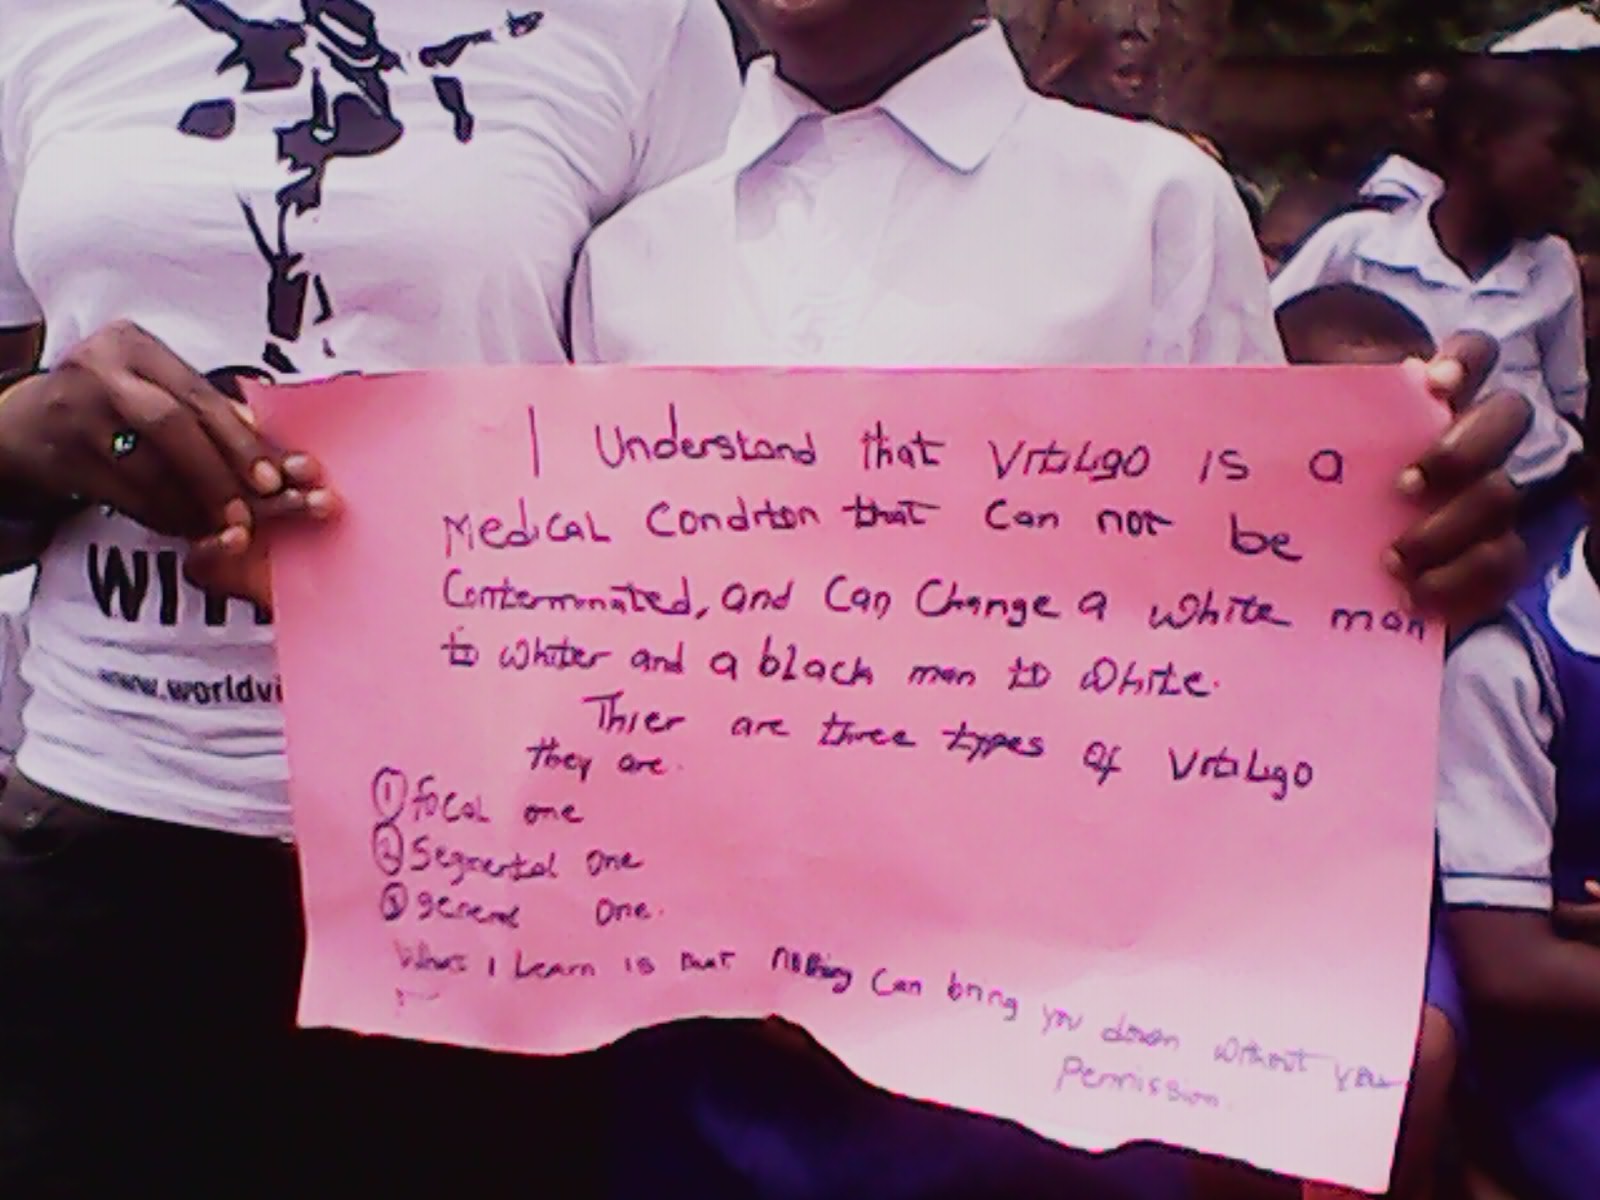 WIT
www.worldvi
I Understand that Vitiligo is a
Medical Condition that Can not be
Contemminated, and Can Change a white man
to whiter and a black man to white.
Thier are three types of Vitiligo
they are.
① focal one
② Segmental one
③ general one.
What I Learn is that Nothing Can bring you down without you
Permission.